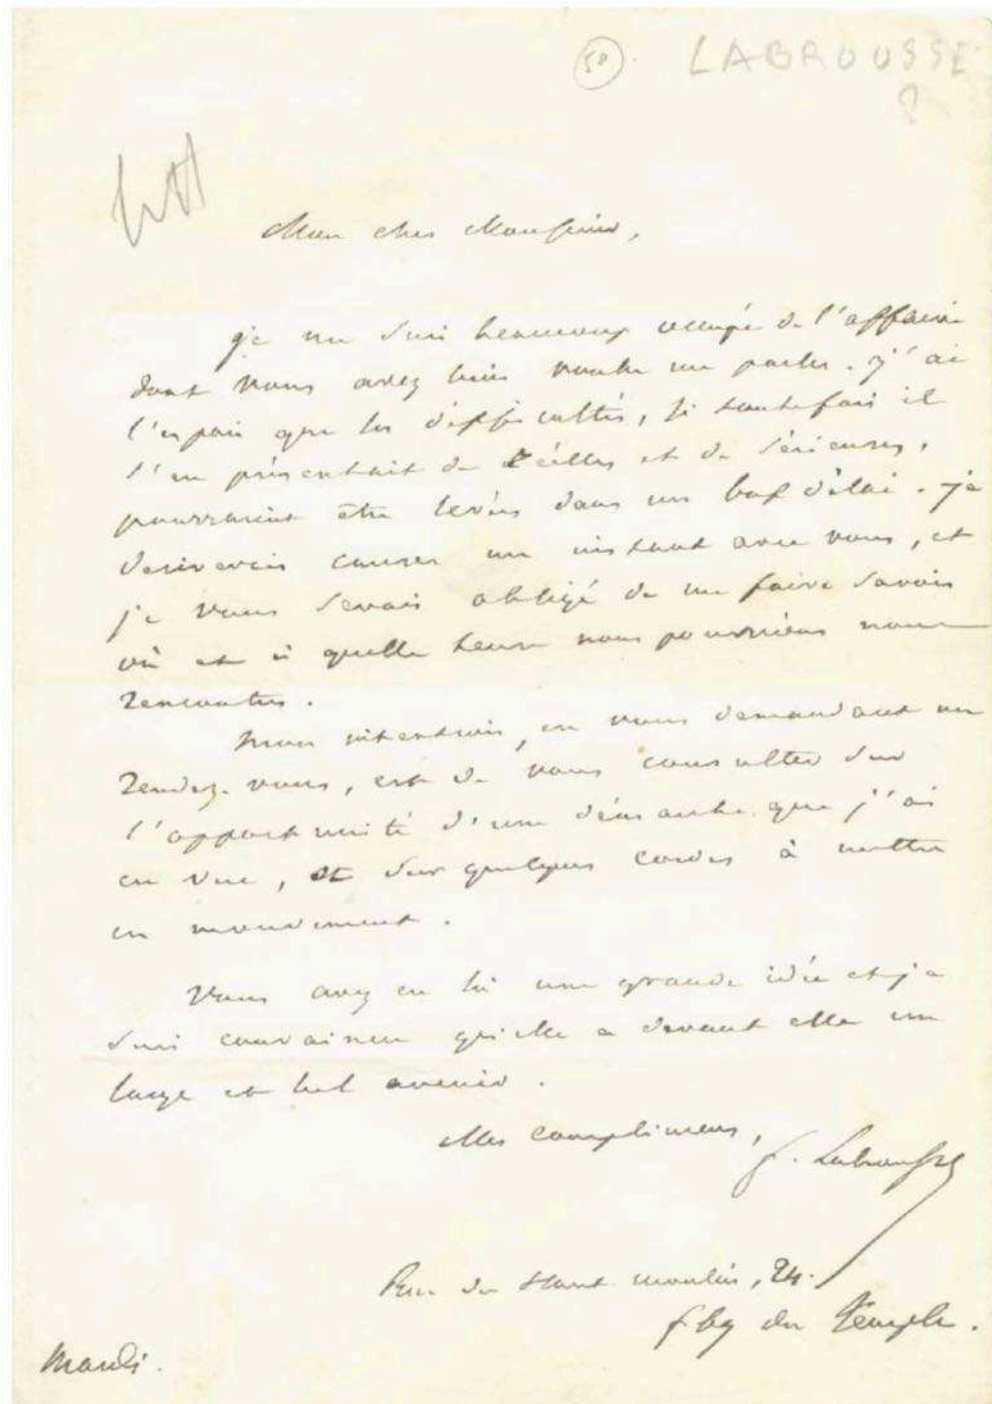 50 LABROUSSE
?
Mon cher Monsieur,
je me suis beaucoup occupé de l'affaire
dont vous avez bien voulu me parler. J'ai
l'espoir que les difficultés, si toutefois il
s'en présentait de réelles et de sérieuses,
pourraient être levées dans un bref délai. Je
desirerais causer un instant avec vous, et
je vous serais obligé de me faire savoir
où et à quelle heure nous pourrions nous
rencontrer.
Mon intention, en vous demandant un
rendez-vous, est de vous consulter sur
l'opportunité d'une démarche que j'ai
en vue, et sur quelques cordes à mettre
en mouvement.
Vous avez eu là une grande idée et je
suis convaincu qu'elle a devant elle un
large et bel avenir.
Mes complimens,
f. Labrousse
Rue du Haut moulin, 24.
fbg du Temple.
Mardi.